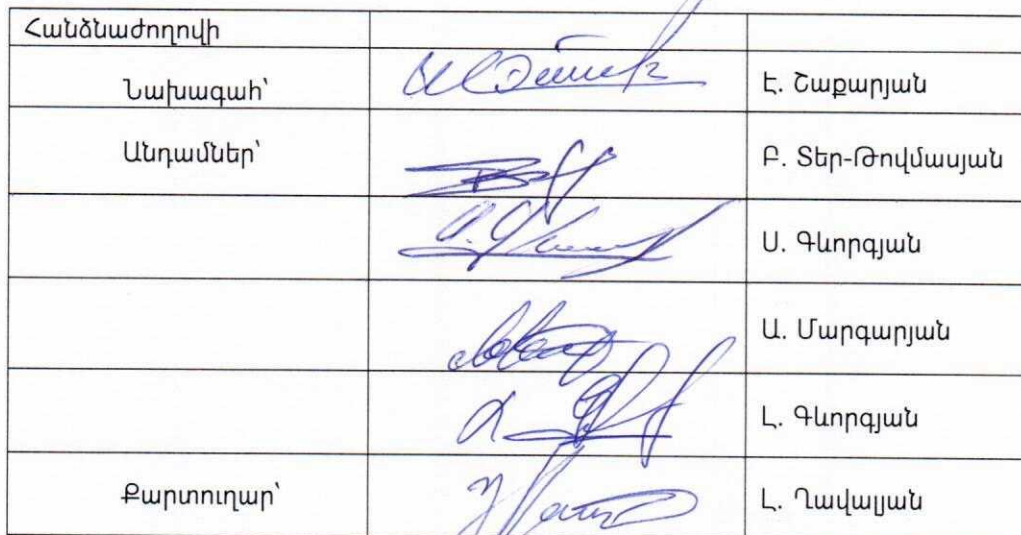 Հանձնաժողովի
Նախագահ՝ Է. Շաքարյան
Անդամներ՝ Բ. Տեր-Թովմասյան
Ս. Գևորգյան
Ա. Մարգարյան
Լ. Գևորգյան
Քարտուղար՝ Լ. Ղավալյան